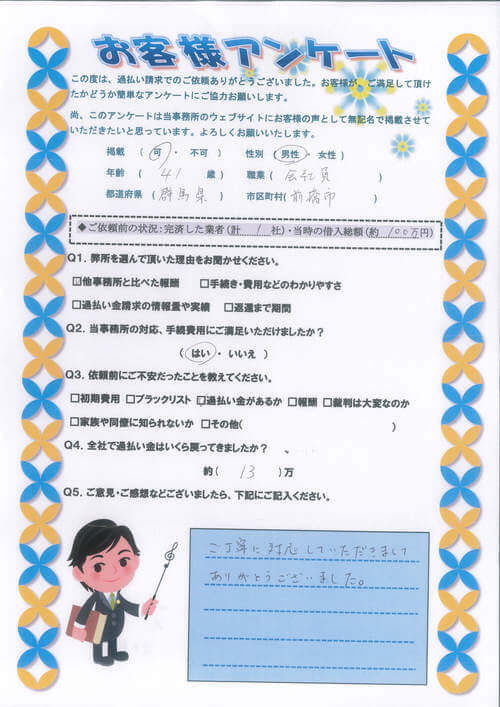 お客様アンケート
この度は、過払い請求でのご依頼ありがとうございました。お客様がご満足して頂け
たかどうか簡単なアンケートにご協力お願いします。
尚、このアンケートは当事務所のウェブサイトにお客様の声として無記名で掲載させて
いただきたいと思っています。よろしくお願いいたします。
掲載 ( 可 ・ 不可 ) 性別 ( 男性 ・ 女性 )
年齢 ( 41 歳 ) 職業 ( 会社員 )
都道府県 ( 群馬県 ) 市区町村( 前橋市 )
◆ご依頼前の状況:完済した業者(計 1 社)・当時の借入総額(約 100万円)
Q1. 弊所を選んで頂いた理由をお聞かせください。
☑他事務所と比べた報酬 □手続き・費用などのわかりやすさ
□過払い金請求の情報量や実績 □返還まで期間
Q2. 当事務所の対応、手続費用にご満足いただけましたか?
( はい ・ いいえ )
Q3. 依頼前にご不安だったことを教えてください。
□初期費用 □ブラックリスト ☑過払い金があるか □報酬 □裁判は大変なのか
□家族や同僚に知られないか □その他( )
Q4. 全社で過払い金はいくら戻ってきましたか?
約( 13 )万
Q5. ご意見・ご感想などございましたら、下記にご記入ください。
ご丁寧に対応していただきまして
ありがとうございました。